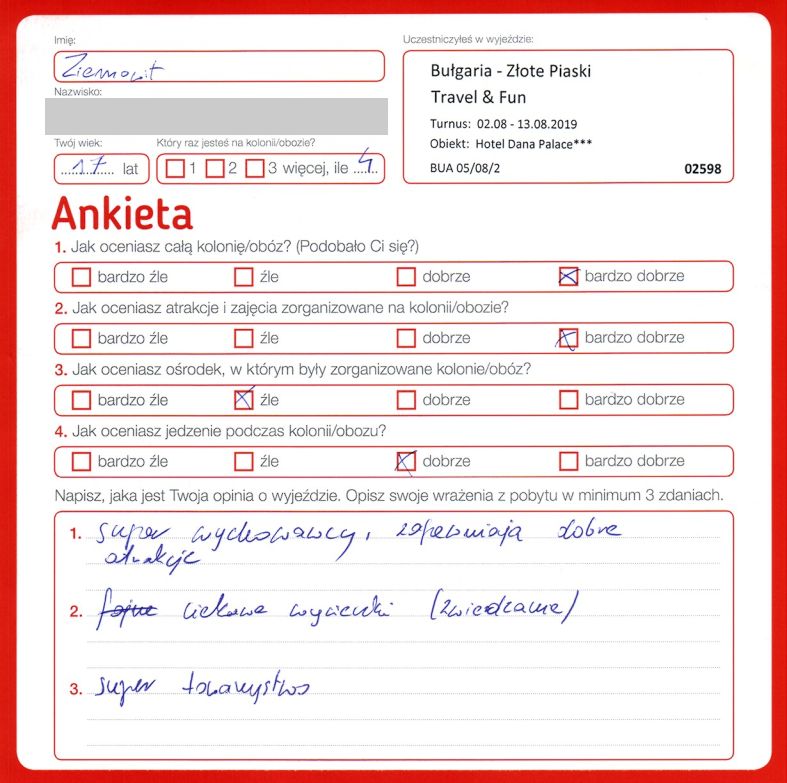 Imię:
Ziemowit
Nazwisko:
Twój wiek:
17 lat
Który raz jesteś na kolonii/obozie?
1 2 3 więcej, ile 4
Uczestniczyłeś w wyjeździe:
Bułgaria - Złote Piaski
Travel & Fun
Turnus: 02.08 - 13.08.2019
Obiekt: Hotel Dana Palace***
BUA 05/08/2 02598
Ankieta
1. Jak oceniasz całą kolonię/obóz? (Podobało Ci się?)
bardzo źle źle dobrze bardzo dobrze
2. Jak oceniasz atrakcje i zajęcia zorganizowane na kolonii/obozie?
bardzo źle źle dobrze bardzo dobrze
3. Jak oceniasz ośrodek, w którym były zorganizowane kolonie/obóz?
bardzo źle źle dobrze bardzo dobrze
4. Jak oceniasz jedzenie podczas kolonii/obozu?
bardzo źle źle dobrze bardzo dobrze
Napisz, jaka jest Twoja opinia o wyjeździe. Opisz swoje wrażenia z pobytu w minimum 3 zdaniach.
1. super wychowawcy, zapewniają dobre
atrakcje
2. fajne ciekawe wycieczki (zwiedzanie)
3. super towarzystwo